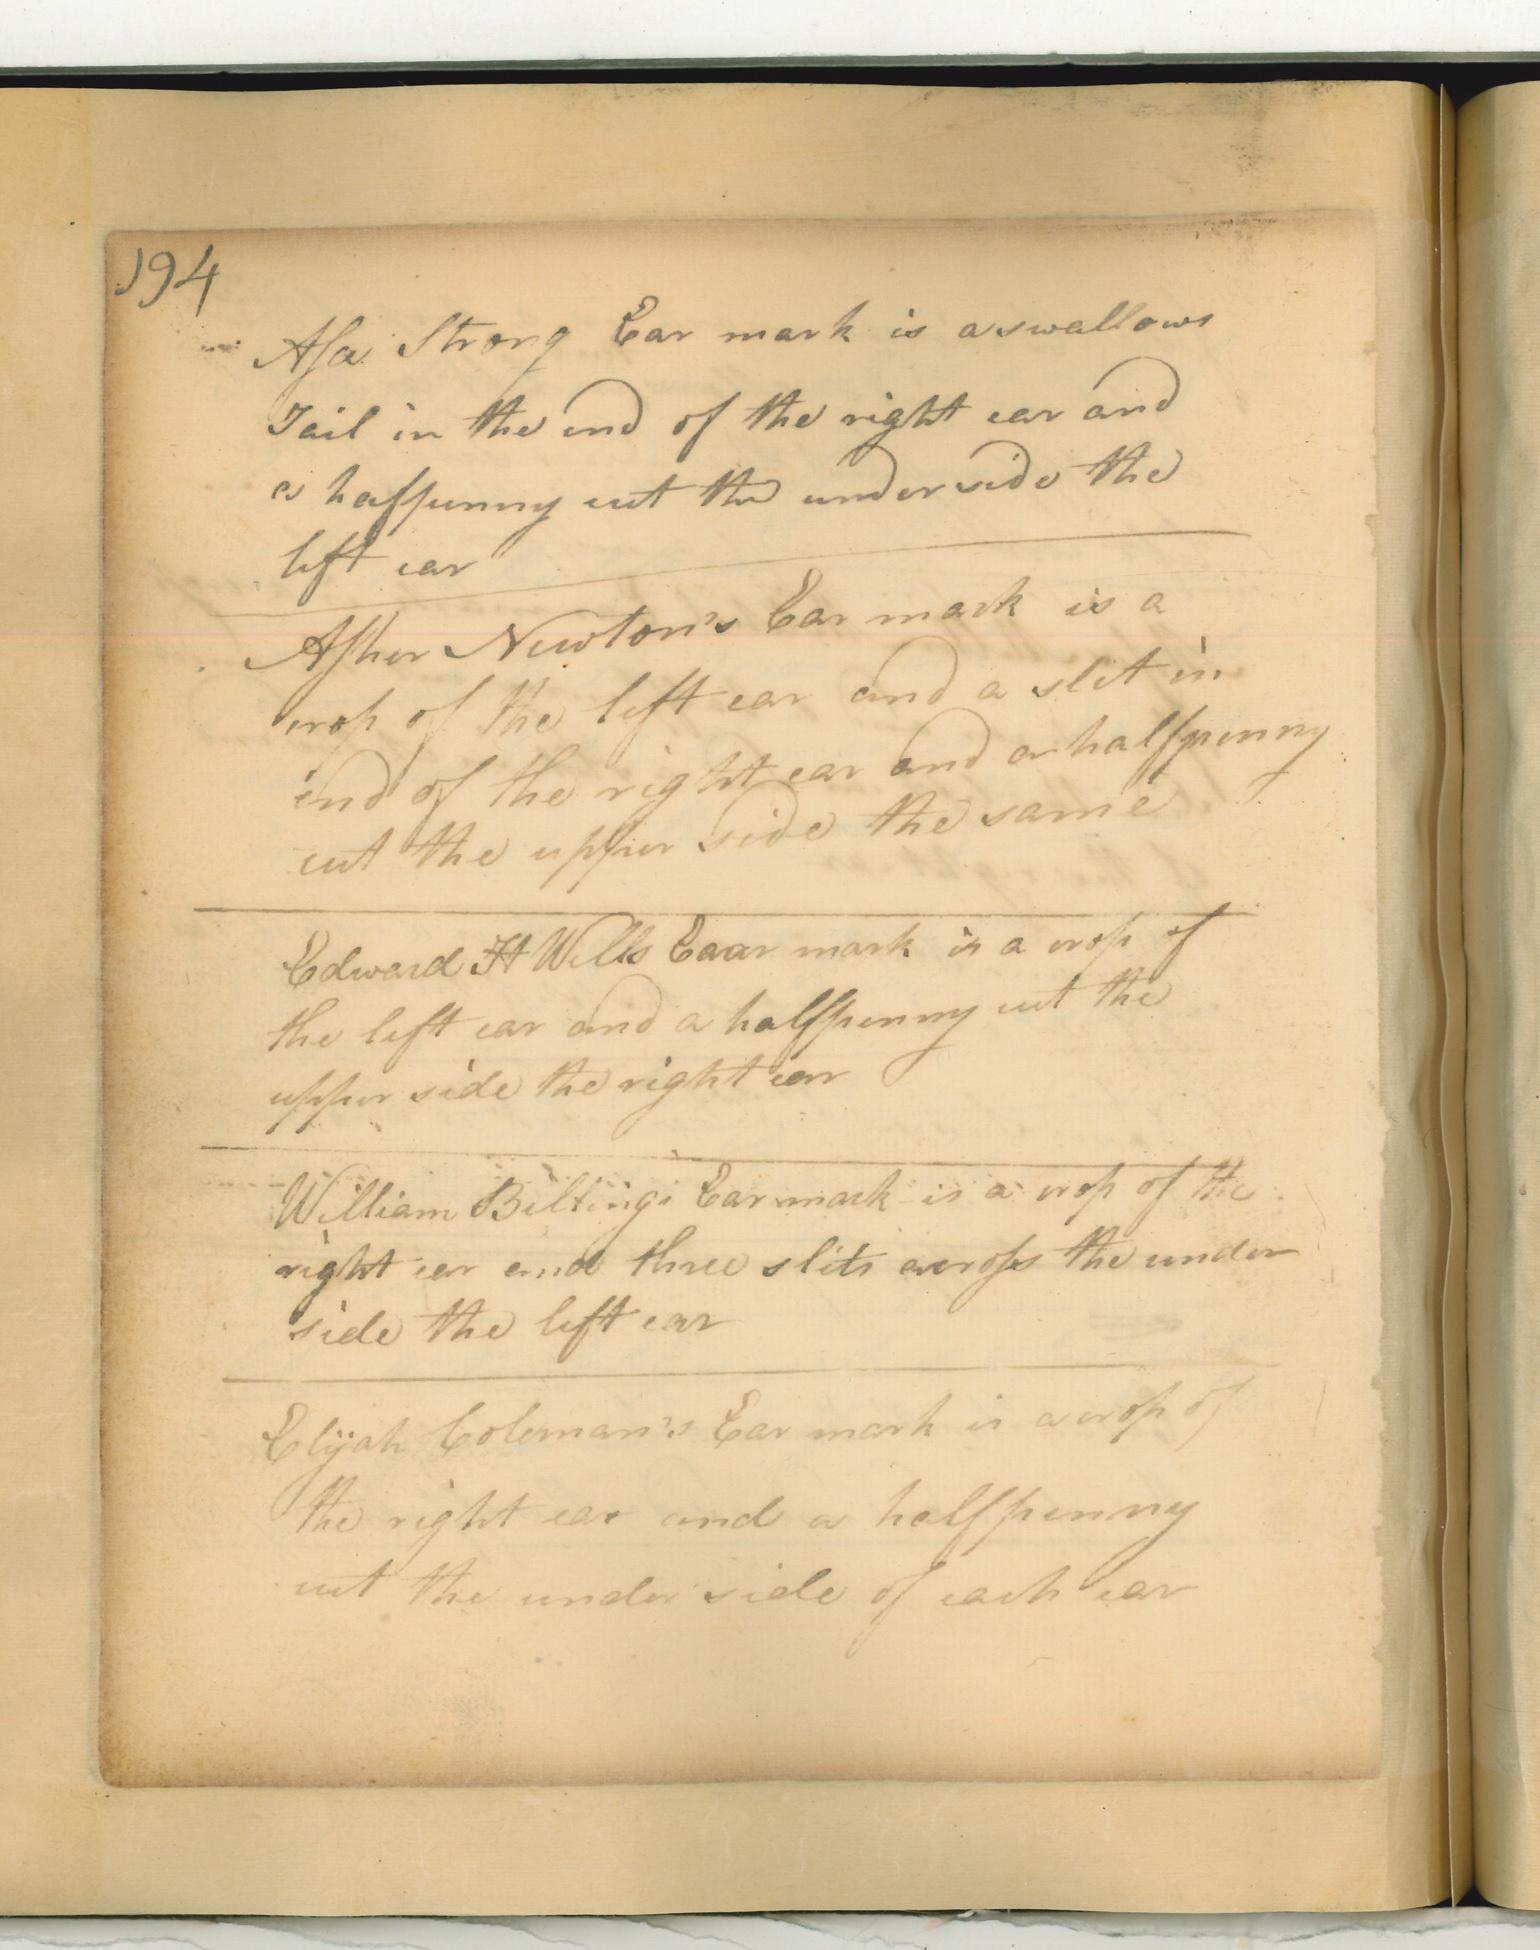 194
Asa Strong Ear mark is a swallows
Tail in the end of the right ear and
a hafpenny cut the under side the
left ear
Asher Newton's Ear mark is a
crop of the left ear and a slit in
end of the right ear and a halfpenny
cut the upper side the same
Edward H Wells Eaar mark is a crop of
the left ear and a halfpenny cut the
upper side the right ear
William Billings Ear mark is a crop of the
right ear and three slits across the under
side the left ear
Elijah Coleman's Ear mark is a crop of
the right ear and a halfpenny
cut the under side of each ear